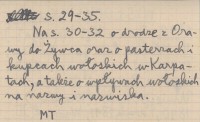 s. 29-35.
Na s. 30-32 o drodze z Ora-
wy do Żywca oraz o pasterzach i
kupcach wołoskich w Karpa-
tach, a także o wpływach wołoskich
na nazwy i nazwiska.
MT